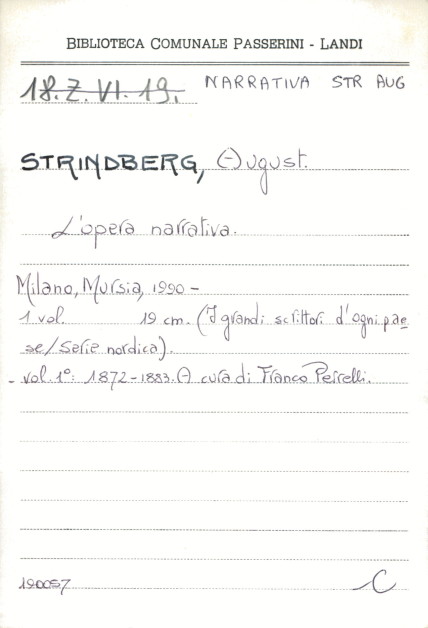 BIBLIOTECA COMUNALE PASSERINI - LANDI
18.Z.VI.19. NARRATIVA STR AUG
STRINDBERG, August.
L'opera narrativa.
Milano, Mursia, 1990 -
1 vol. 19 cm. (I grandi scrittori d'ogni pae
se/Serie nordica).
- vol. 1º: 1872-1883. A cura di Franco Perrelli.
190057 C